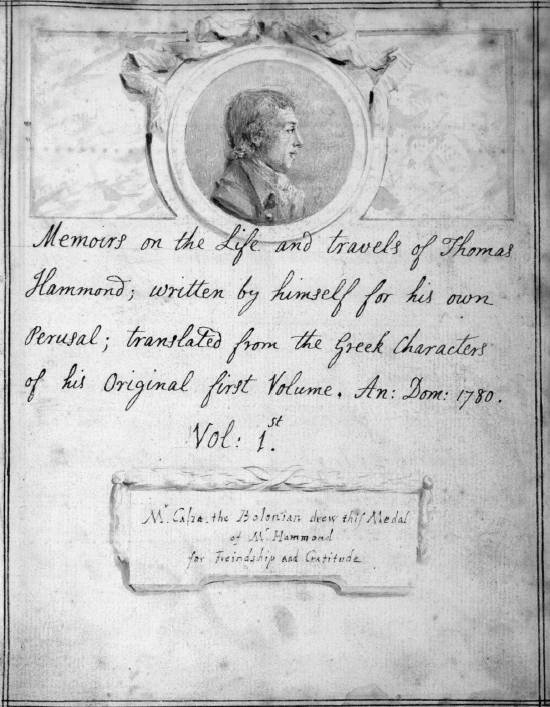 Memoirs on the Life and travels of Thomas
Hammond; written by himself for his own
Perusal; translated from the Greek Characters
of his Original first Volume. An: Dom: 1780.
Vol: 1.st
Mr. Calza. the Bolonian drew this Medal
of Mr. Hammond
for Freindship and Gratitude